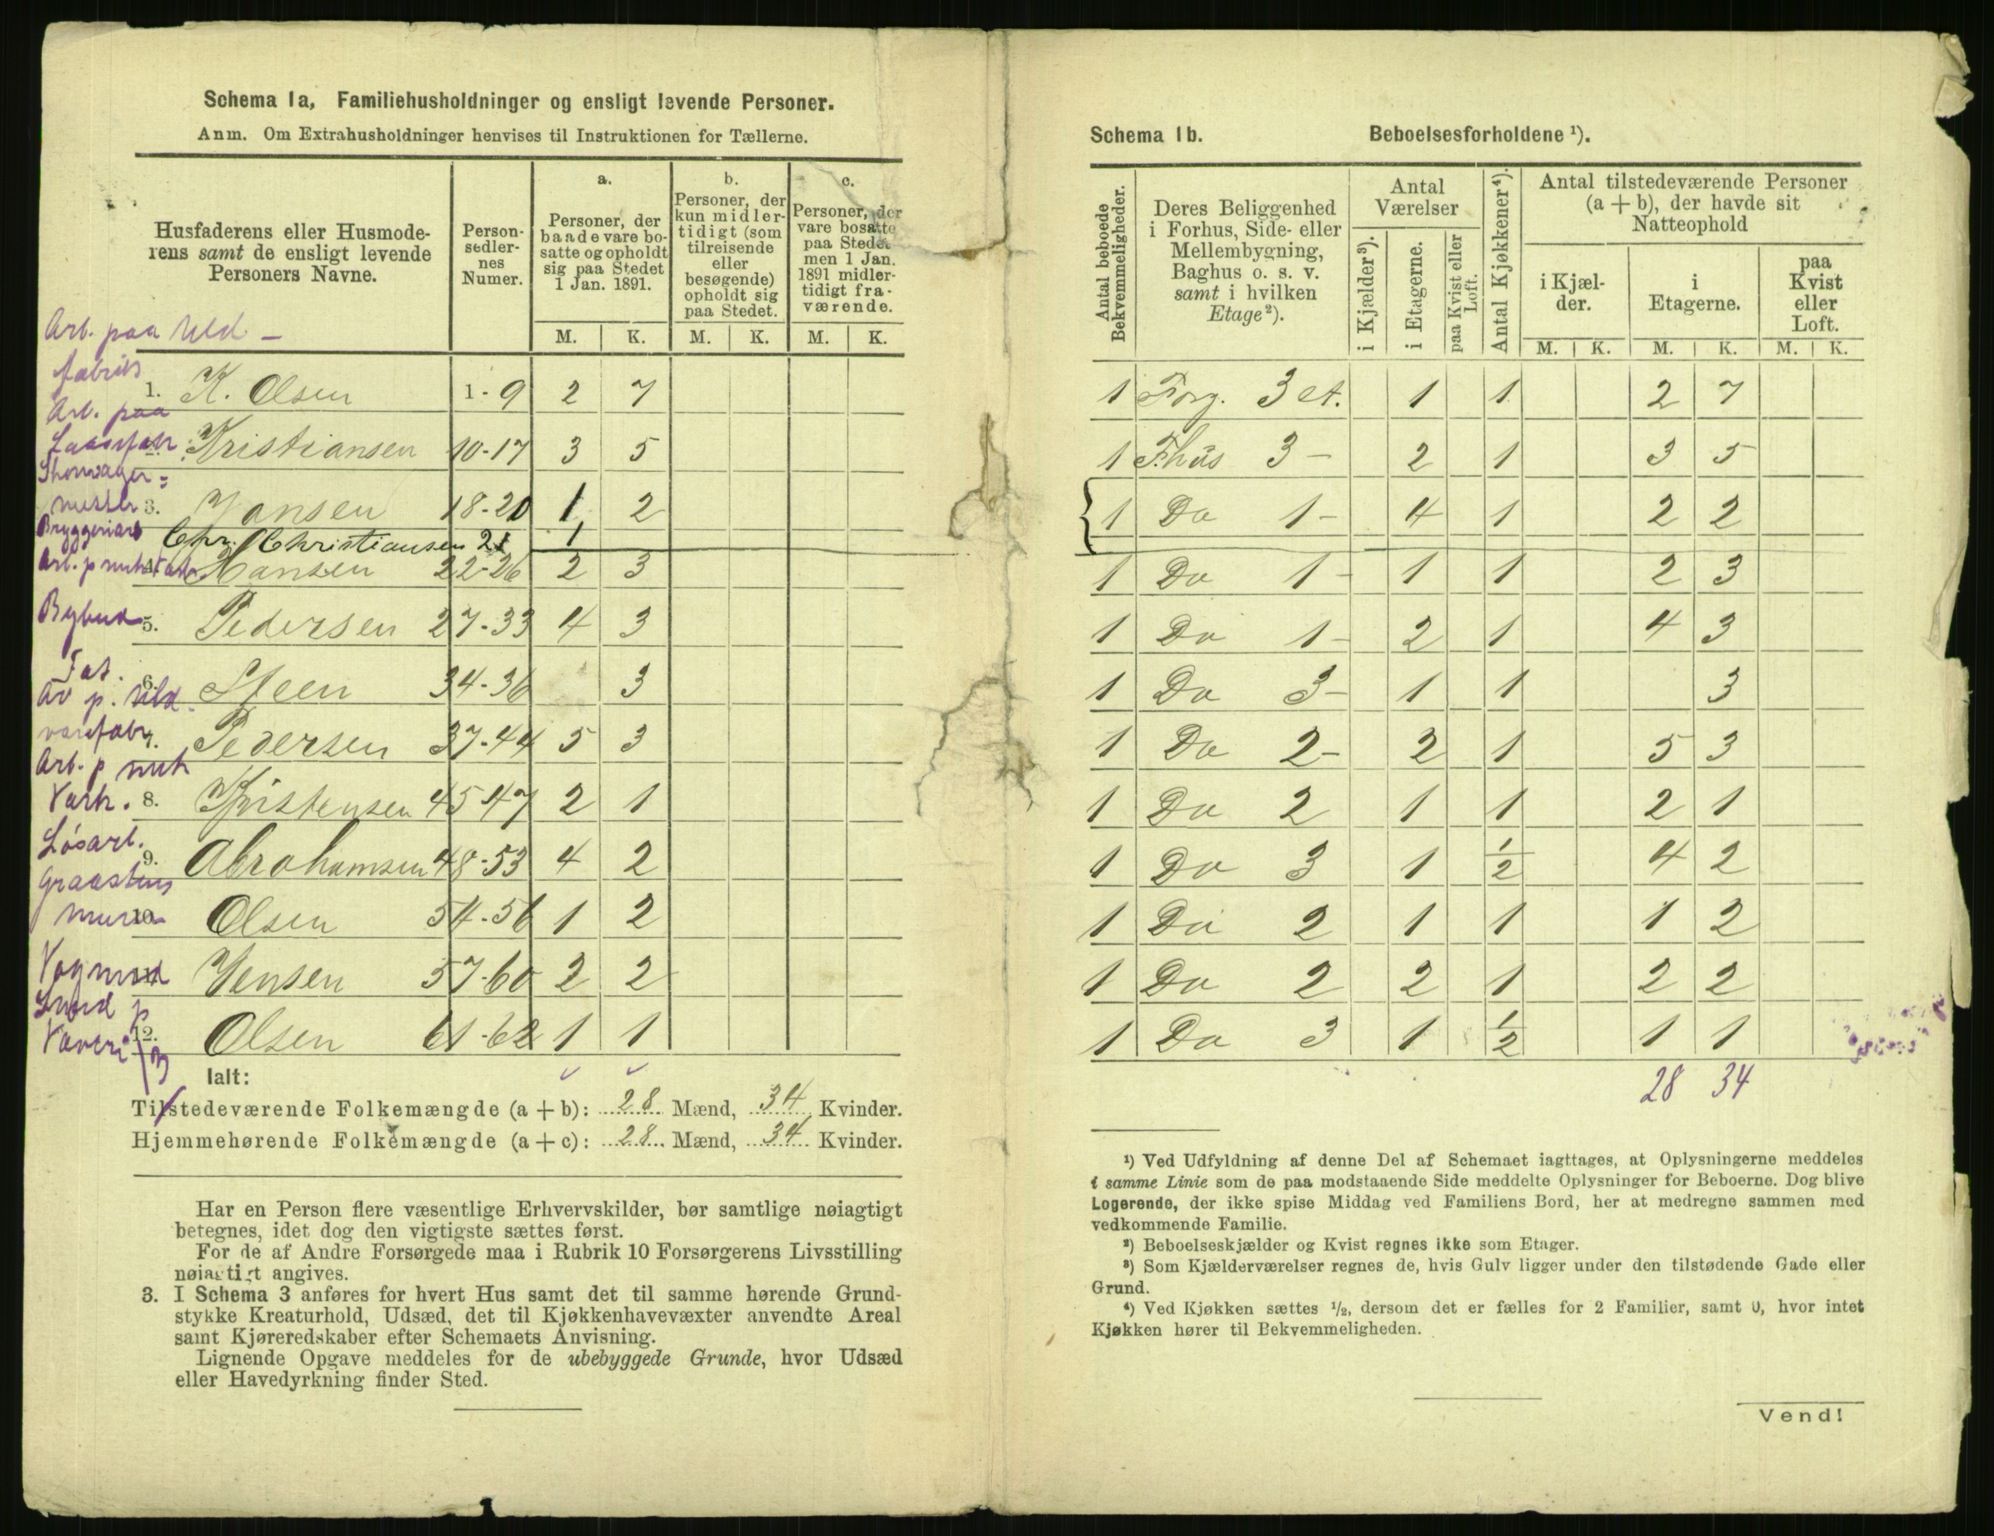 Schema 1a, Familiehusholdninger og ensligt levende Personer.
Anm. Om Extrahusholdninger henvises til Instruktionen for Tællerne.
Husfaderens eller Husmoderens samt de ensligt levende Personers Navne.
Personsedlernes Numer.
a. Personer, der baade vare bosatte og opholdt sig paa Stedet 1 Jan. 1891.
b. Personer, der kun midlertidigt (som tilreisende eller besøgende) opholdt sig paa Stedet.
c. Personer, der vare bosatte paa Stedet men 1 Jan. 1891 midlertidigt fraværende.
M. K. M. K. M. K.
Arb. paa Uld-
fabrik
1. K. Olsen 1-9 2 7
Arb. paa
2. Kristiansen 10-17 3 5
3. Jansen 18-20 1 2
Bryggeriarb Chr. Christiansen 21 1
4. Hansen 22-26 2 3
Bybud 5. Pedersen 27-33 4 3
6. Steen 34-36 3
Arb. p. Uld
varefabr 7. Pedersen 37-44 5 3
Arb. p mek
Værk. 8. Kristensen 45-47 2 1
Løsarb.
9. Abrahamsen 48-53 4 2
Graastens
murer 10. Olsen 54-56 1 2
Vognmd 11. Jensen 57-60 2 2
Smed p
Væveri 12. Olsen 61-62 1 1
13
Ialt:
Tilstedeværende Folkemængde (a + b): 28 Mænd, 34 Kvinder.
Hjemmehørende Folkemængde (a + c): 28 Mænd, 34 Kvinder.
Har en Person flere væsentlige Erhvervskilder, bør samtlige nøiagtigt
betegnes, idet dog den vigtigste sættes først.
For de af Andre Forsørgede maa i Rubrik 10 Forsørgerens Livsstilling
nøiagtigt angives.
3. I Schema 3 anføres for hvert Hus samt det til samme hørende Grund-
stykke Kreaturhold, Udsæd, det til Kjøkkenhavevæxter anvendte Areal
samt Kjøreredskaber efter Schemaets Anvisning.
Lignende Opgave meddeles for de ubebyggede Grunde, hvor Udsæd
eller Havedyrkning finder Sted.
Schema 1b. Beboelsesforholdene ¹).
Antal beboede Bekvemmeligheder.
Deres Beliggenhed i Forhus, Side- eller Mellembygning, Baghus o. s. v. samt i hvilken Etage ²).
Antal Værelser
i Kjælder ³).
i Etagerne.
paa Kvist eller Loft.
Antal Kjøkkener ⁴).
Antal tilstedeværende Personer (a + b), der havde sit Natteophold
i Kjælder.
i Etagerne.
paa Kvist eller Loft.
M. K. M. K. M. K.
1 Forg. 3 et. 1 1 2 7
1 F.hus 3 - 2 1 3 5
1 Do 1 - 4 1 2 2
1 Do 1 - 1 1 2 3
1 Do 1 - 2 1 4 3
1 Do 3 - 1 1 3
1 Do 2 - 2 1 5 3
1 Do 2 1 1 2 1
1 Do 3 1 1/2 4 2
1 Do 2 1 1 1 2
1 Do 2 2 1 2 2
1 Do 3 1 1/2 1 1
28 34
¹) Ved Udfyldning af denne Del af Schemaet iagttages, at Oplysningerne meddeles
i samme Linie som de paa modstaaende Side meddelte Oplysninger for Beboerne. Dog blive
Logerende, der ikke spise Middag ved Familiens Bord, her at medregne sammen med
vedkommende Familie.
²) Beboelseskjælder og Kvist regnes ikke som Etager.
³) Som Kjælderværelser regnes de, hvis Gulv ligger under den tilstødende Gade eller
Grund.
⁴) Ved Kjøkken sættes 1/2, dersom det er fælles for 2 Familier, samt 0, hvor intet
Kjøkken hører til Bekvemmeligheden.
Vend!